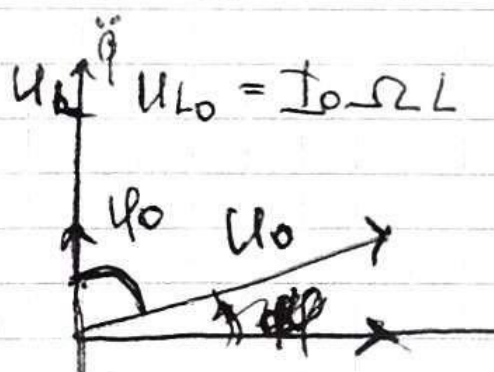 q̈
U_L U_{L0} = I_0 Ω L
φ_0 U_0